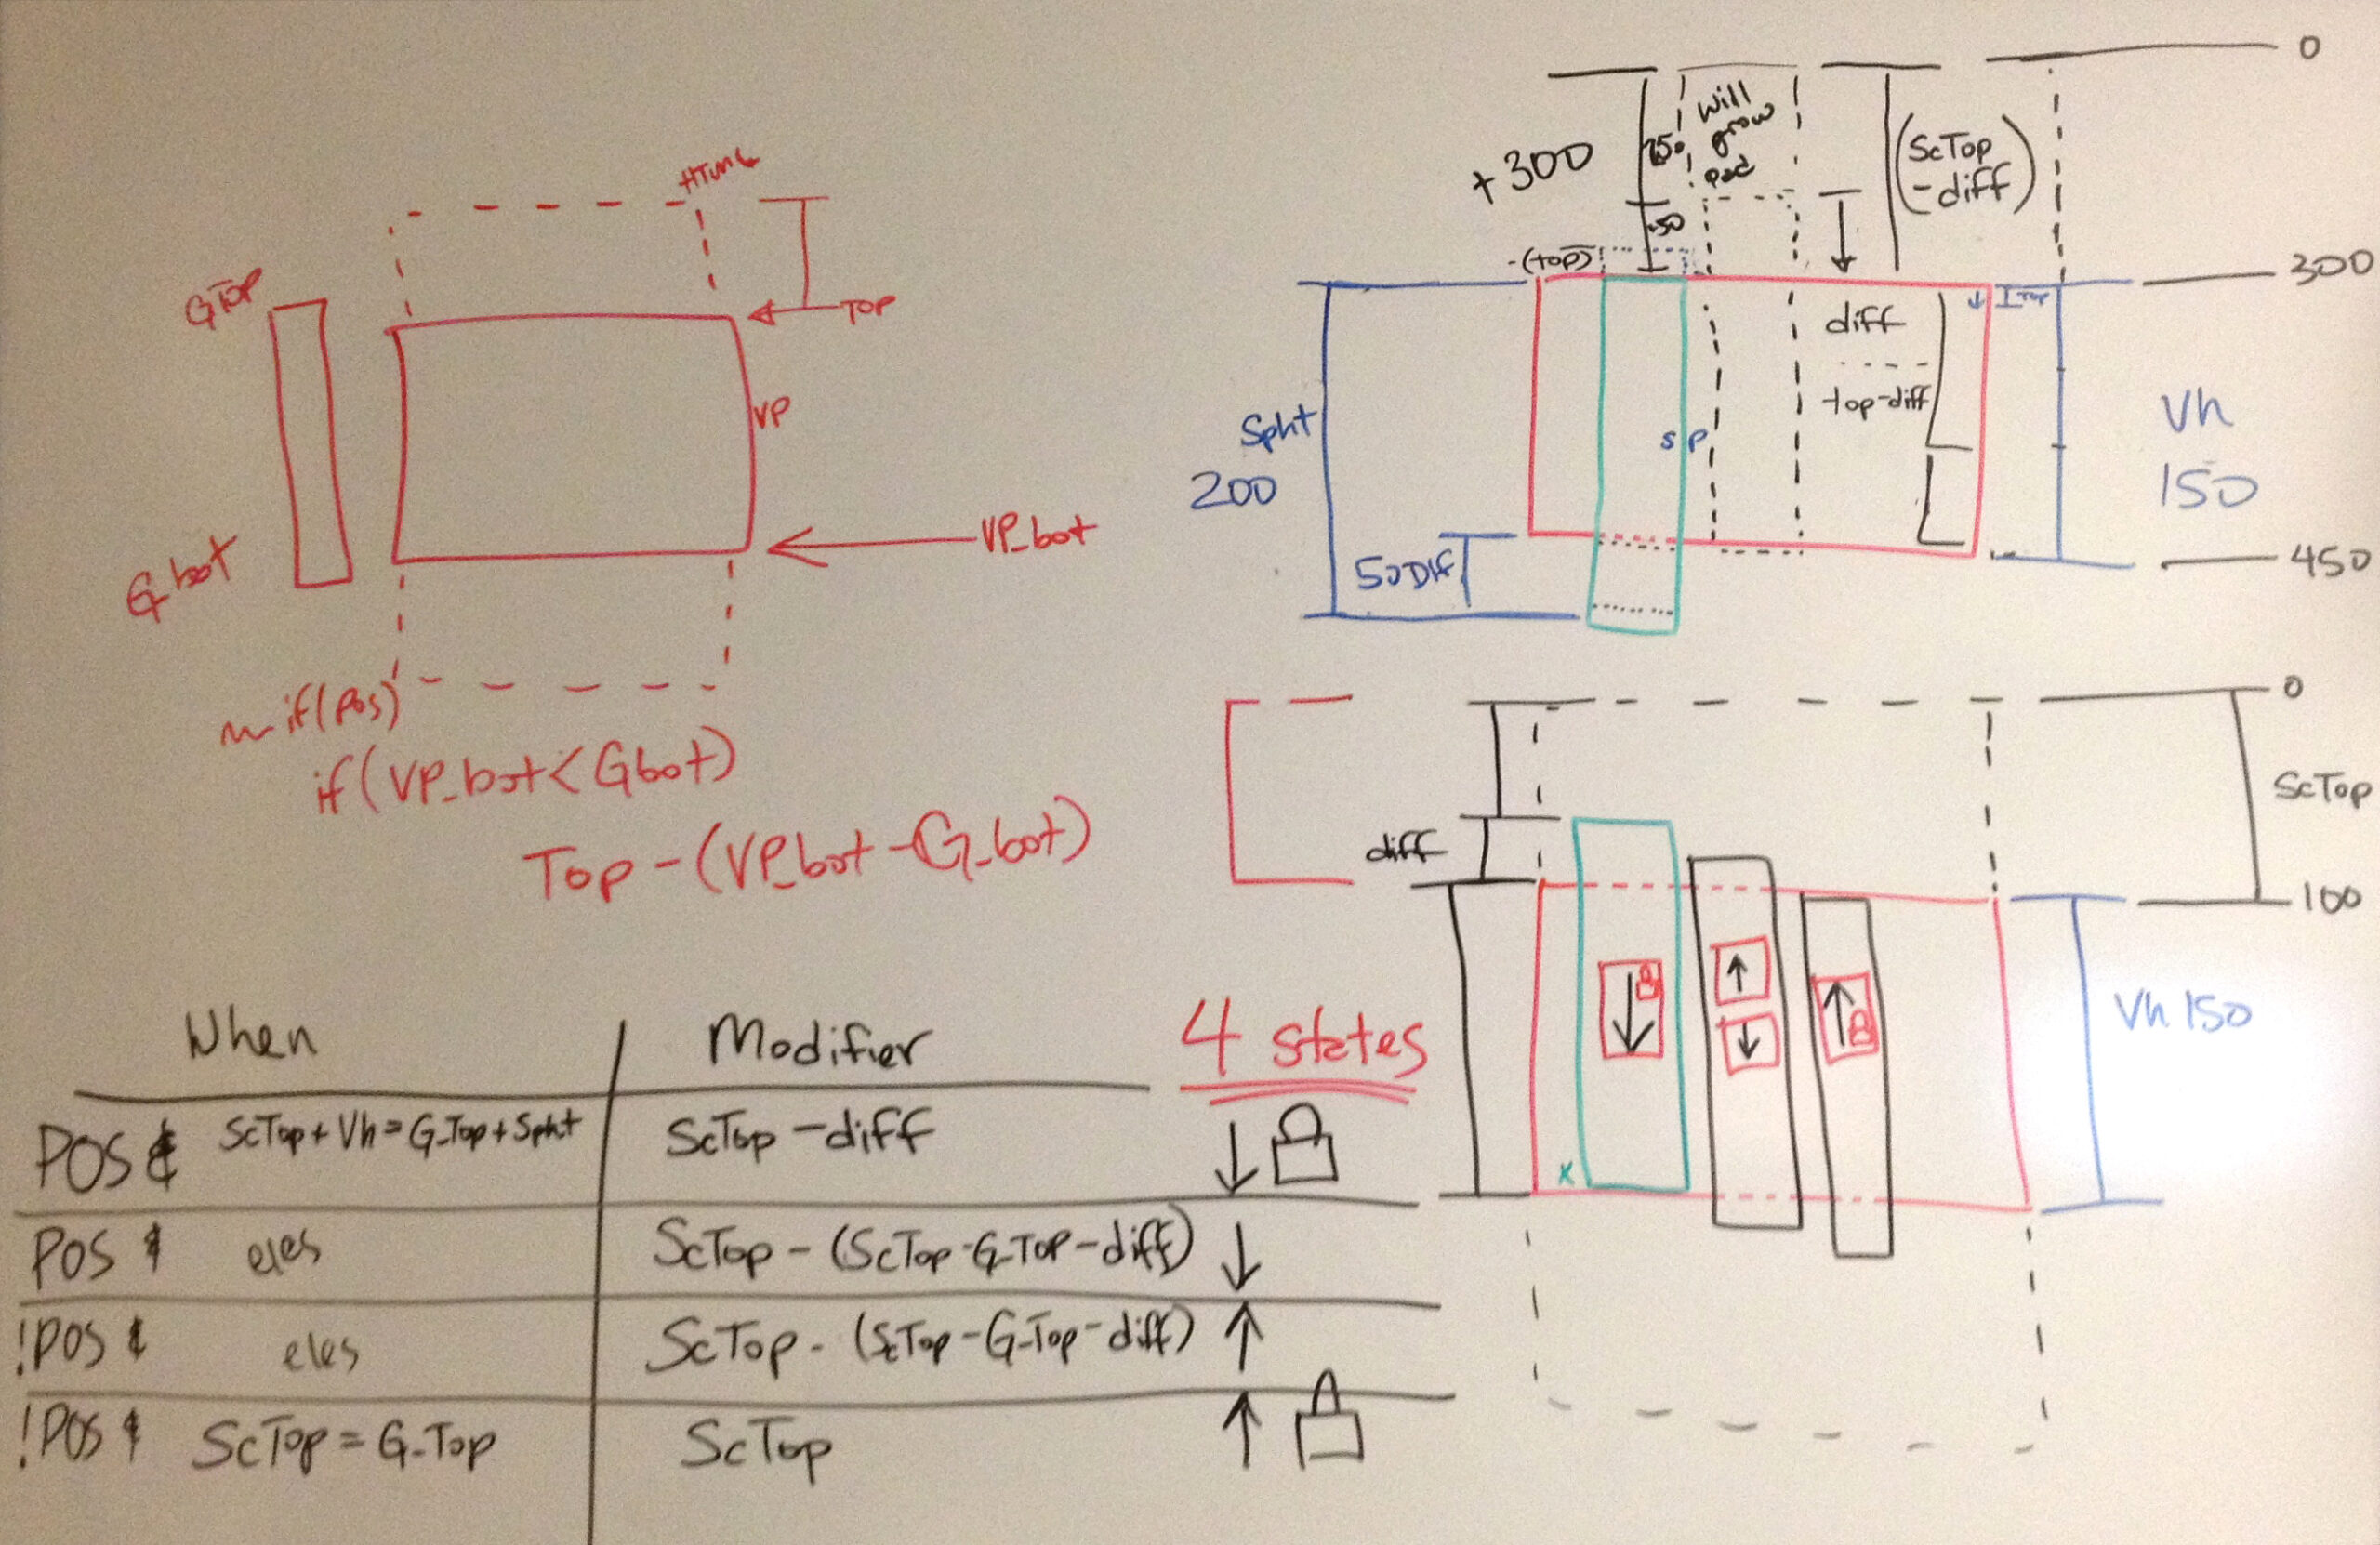 HTML
GTop
TOP
VP
VP_bot
Gbot
if(Pos)
if(VP_bot<Gbot)
Top-(VP_bot-G_bot)
0
+300
will
grow
pad
(ScTop
-diff)
50
-(top)
300
diff
Top
top-diff
Spht
200
SP
Vh
150
50Dif
450
0
ScTop
diff
100
Vh 150
x
When
Modifier
4 states
POS & ScTop+Vh=G_Top+Spht
ScTop-diff
POS & eles
ScTop-(ScTop-G_TOP-diff)
!POS & eles
ScTop-(ScTop-G_Top-diff)
!POS & ScTop=G_Top
ScTop